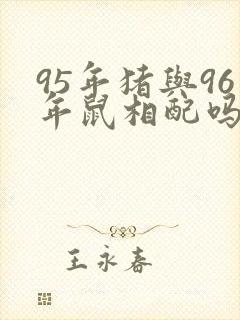 95年猪與96
年鼠相配吗
王永春